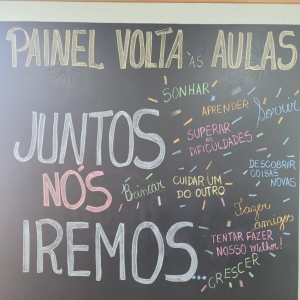 PAINEL VOLTA ÀS AULAS
JUNTOS
NÓS
IREMOS...
SONHAR
APRENDER
Sorrir
SUPERAR
AS
DIFICULDADES
DESCOBRIR
COISAS
NOVAS
Brincar
CUIDAR UM
DO OUTRO
Fazer
amigos
TENTAR FAZER
NOSSO melhor!
CRESCER